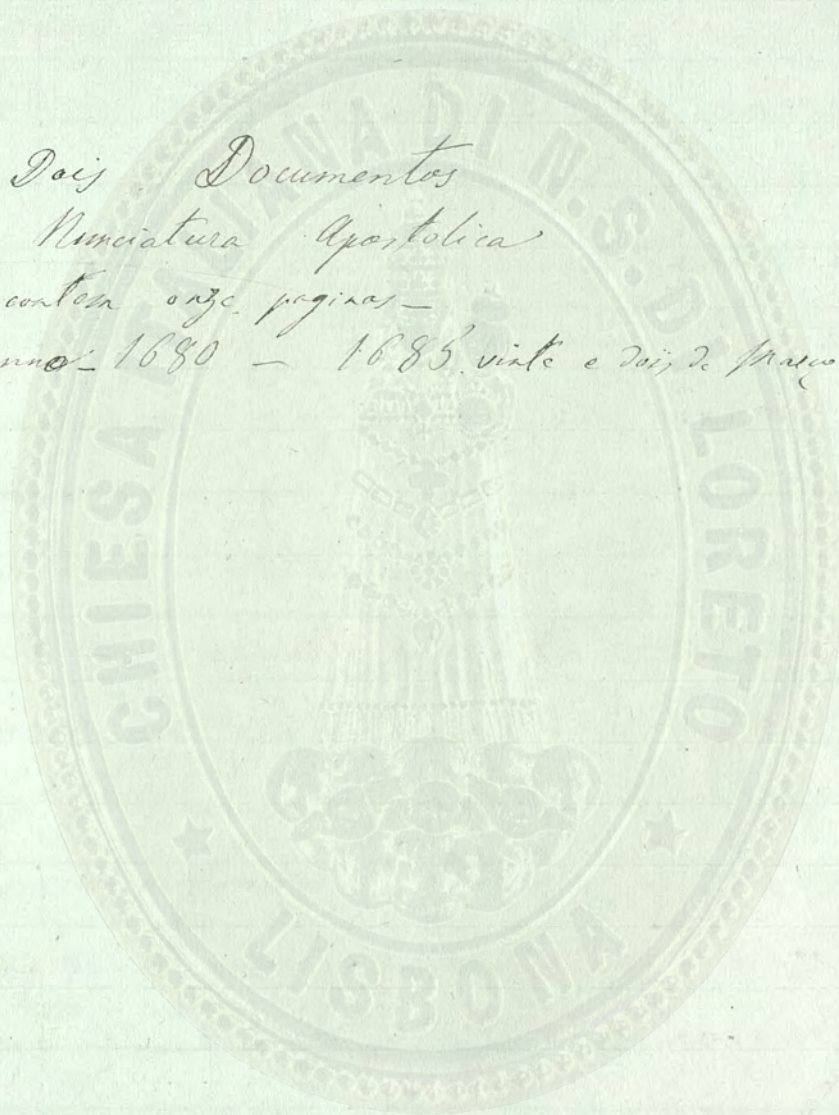 Dois Documentos
Nunciatura Apostolica
contem onze paginas_
nno_ 1680 _ 1685 vinte e dois de Março
CHIESA ITALIANA DI N.S. DI LORETO
LISBONA